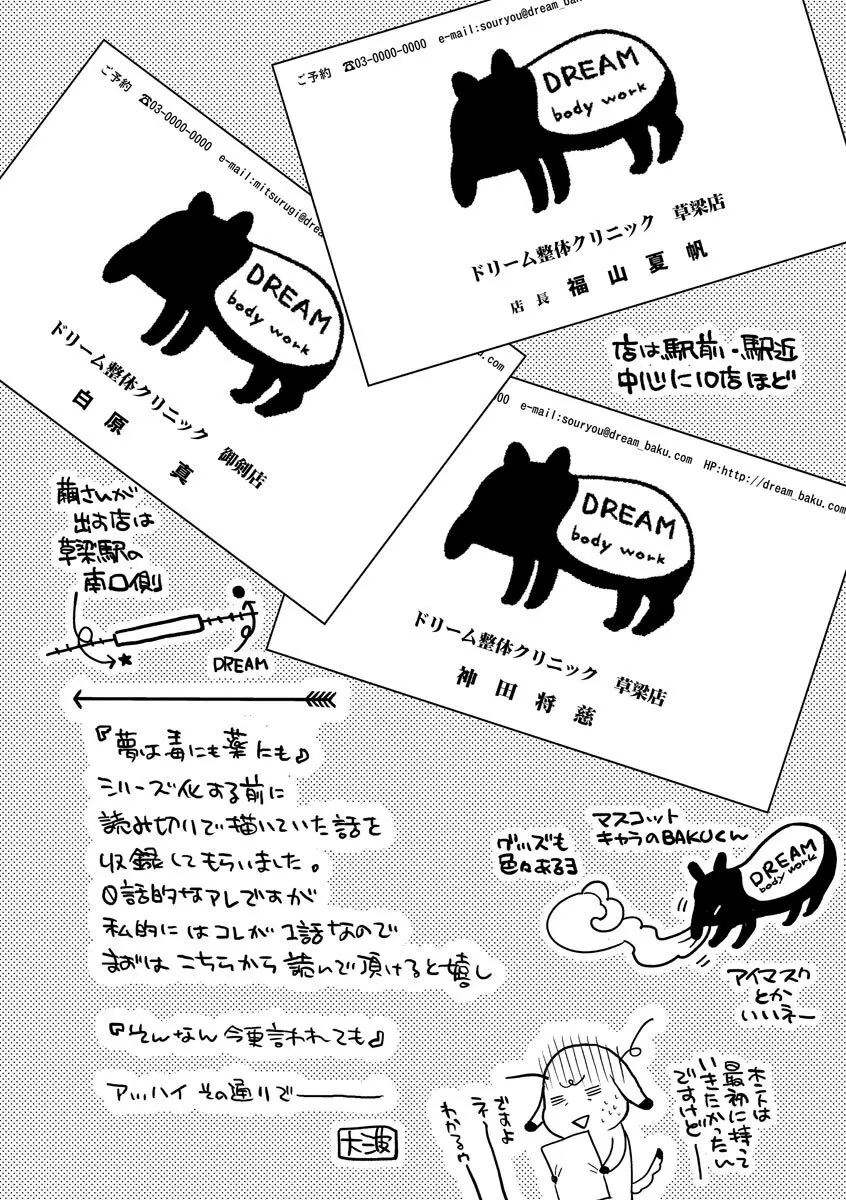 ご予約 ☎03-0000-0000 e-mail:souryou@dream_baku
DREAM
body work
ドリーム整体クリニック 草梁店
店長 福山夏帆
ご予約 ☎03-0000-0000 e-mail:mitsurugi@drea
DREAM
body work
ドリーム整体クリニック 御剣店
白原 真
店は駅前・駅近
中心に10店ほど
00 e-mail:souryou@dream_baku.com HP:http://dream_baku.com
DREAM
body work
ドリーム整体クリニック 草梁店
神田将慈
繭さんが
出す店は
草梁駅の
南口側
DREAM
『夢は毒にも薬にも』
シリーズ化する前に
読み切りで描いていた話を
収録してもらいました。
0話的なアレですが
私的にはコレが1話なので
まずはこちらから読んで頂けると嬉し
『そんなん今更言われても』
アッハイその通りで―――
大波
マスコット
キャラのBAKUくん
グッズも
色々あるヨ
DREAM
body work
アイマスク
とか
いいネー
ホントは
最初に持って
いきたかったん
ですけどー
ですよ
ネー
わかるゥー